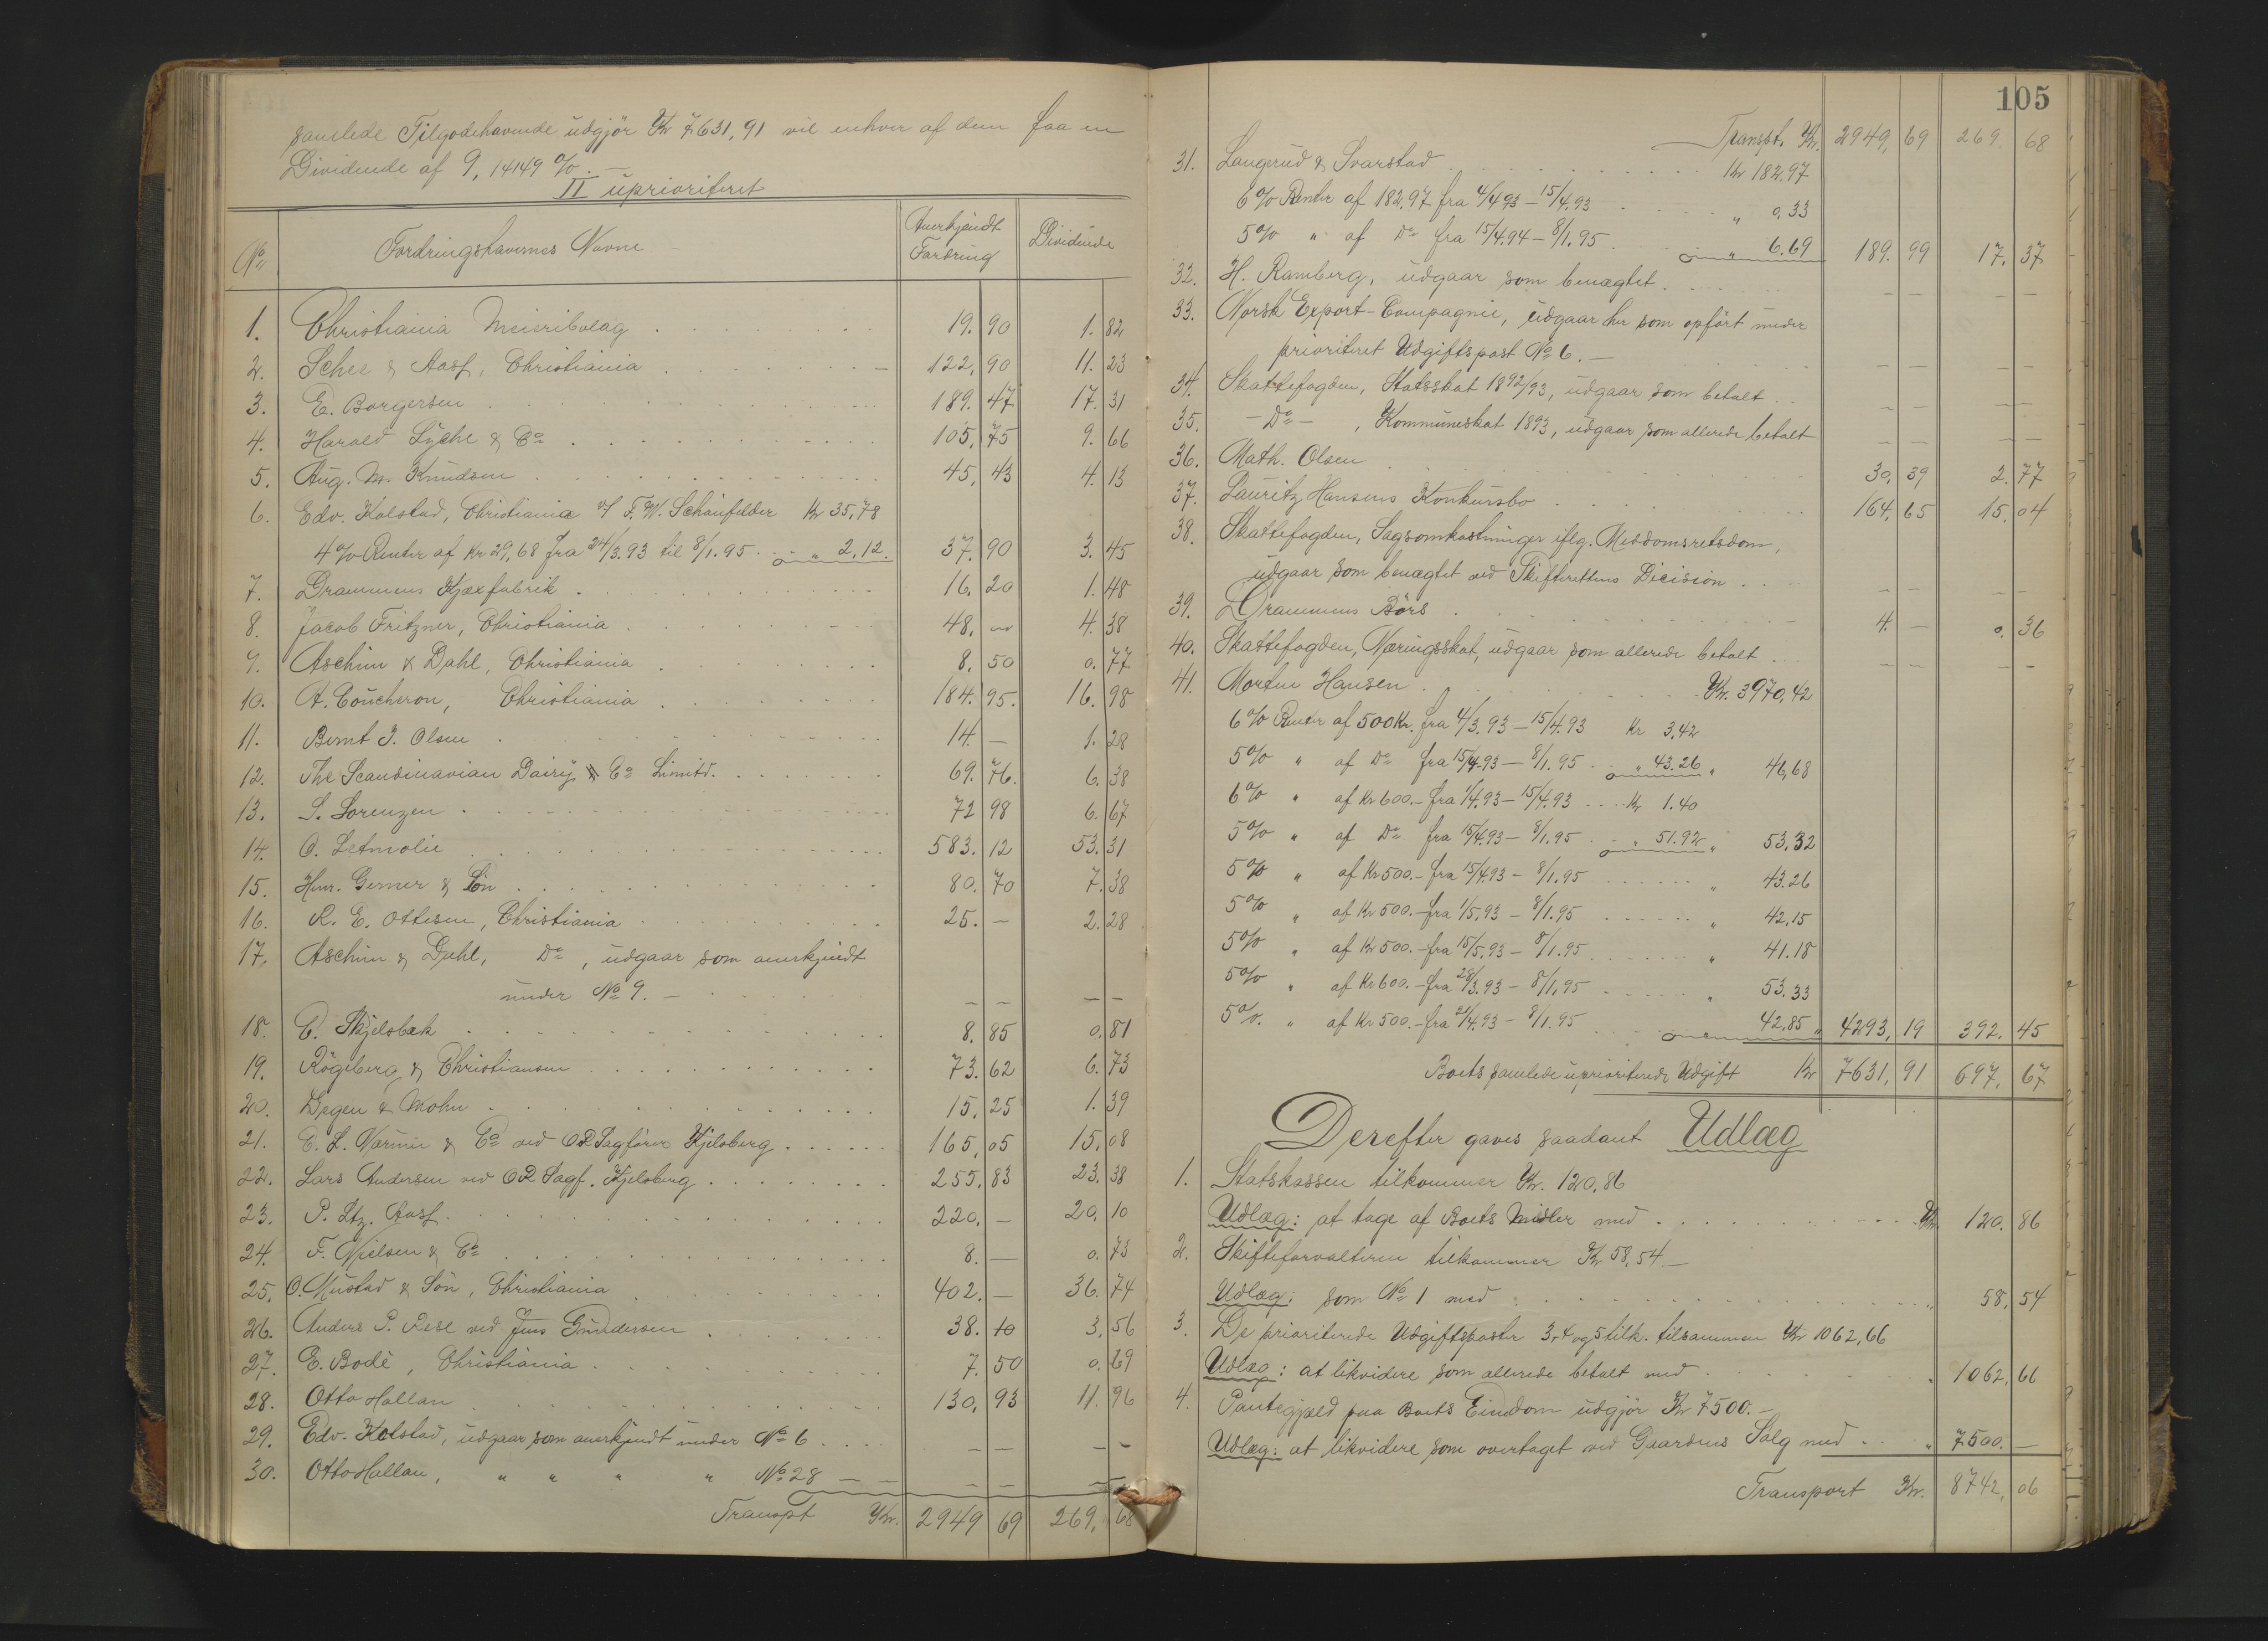 samlede Tilgodehavende udgjør Kr 7631,91 vil enhver af dem faa en
Dividende af 9,14149 %. —
II uprioriteret
No Fordringshavernes Navne — Anerkjendt Fordring Dividende
1. Christiania Meieribolag 19.90 1.82
2. Schee & Aass, Christiania 122,90 11.23
3. E. Borgersen 189.47 17.31
4. Harald Lyche & Co 105,75 9.66
5. Aug. M. Knudsen 45,43 4.13
6. Edv. Kolstad, Christiania o/ F. W. Schaufelder Kr 35,78
4 % Renter af Kr 29,68 fra 24/3.93 til 8/1.95 " 2,12. 37.90 3.45
7. Drammens Kjæxfabrik 16.20 1.48
8. Jacob Fritzner, Christiania 48. — 4.38
9. Aschim & Dahl, Christiania 8.50 0.77
10. A. Coucheron, Christiania 184.95. 16.98
11. Bernt J. Olsen 14. — 1.28
12. The Scandinavian Dairy Co Limitd. 69.76. 6.38
13. S. Lorenzen 72 98 6.67
14. O. Letmolie 583.12 53.31
15. Henr. Gerner & Søn 80.70 7.38
16. R. E. Ottesen, Christiania 25. — 2.28
17. Aschim & Dahl, Do, udgaar som anerkjendt
under No 9. — — — — —
18. E. Skjelsbæk 8.85 0.81
19. Rögeberg & Christiansen 73.62 6.73
20. Degen & Mohn 15,25 1.39
21. E. L. Nærmie & Co ved OR Sagfører Kjelsberg 165,05 15,08
22. Lars Andersen ved OR Sagf. Kjelsberg 255,83 23.38
23. P. Ltz. Aass 220, — 20,10
24. F. Nielsen & Co 8. — 0.73
25. O. Mustad & Søn, Christiania 402. — 36.74
26. Anders P. ved Jens Gundersen 38.10 3,56
27. E. Bodé, Christiania 7.50 0.69
28. Otto Hallan 130,93 11.96
29. Edv. Kolstad, udgaar som anerkjendt under No 6 — — — —
30. Otto Hallan, " " " " No 28 — — — — — —
Transpt Kr. 2949 69 269,68
105
Transpt. Kr. 2949,69 269.68
31. Langerud & Svarstad Kr 182.97
6 % Renter af 182.97 fra 4/4 93 – 15/4.93 " 0,33
5 % " af Do fra 15/4.94 – 8/1.95 " 6.69 189.99 17.37
32. H. Ramberg, udgaar som benægtet — — — —
33. Norsk Export-Compagni, udgaar her som opført under
prioriteret Udgiftspost No 6. — — — — —
34. Skattefogden, Statsskat 1892/93, udgaar som betalt — — — —
35. – Do – , Kommuneskat 1893, udgaar som allerede betalt — — — —
36. Math. Olsen 30,39 2.77
37. Lauritz Hansens Konkursbo 164,65 15,04
38. Skattefogden, Sagsomkostninger iflg. Meddomsretsdom,
udgaar som benægtet ved Skifterettens Decision — — — —
39. Drammens Börs 4. — 0.36
40. Skattefogden, Næringsskat, udgaar som allerede betalt — — — —
41. Morten Hansen Kr. 3970,42
6 % Renter af 500 Kr. fra 4/3.93 – 15/4.93 Kr 3,42
5 % " af Do fra 15/4.93 – 8/1.95 " 43.26 " 46,68
6 % " af Kr 600.– fra 1/4.93 – 15/4.93 Kr 1.40
5 % " af Do fra 15/4.93 – 8/1.95 " 51.92 " 53,32
5 % " af Kr 500.– fra 15/4.93 – 8/1.95 " 43.26
5 % " af Kr 500.– fra 1/5.93 – 8/1.95 " 42,15
5 % " af Kr 500.– fra 15/5.93 – 8/1.95 " 41.18
5 % " af Kr 600.– fra 28/3.93 – 8/1.95 " 53.33
5 %. " af Kr 500.– fra 21/4.93 – 8/1.95 42,85 " 4293,19 392.45
Boets samlede uprioriterede Udgift Kr 7631,91 697,67
Derefter gaves saadant Udlæg
1. Statskassen tilkommer Kr. 120,86
Udlæg: at tage af Boets Midler med Kr. 120.86
2. Skifteforvalteren tilkommer Kr 58,54 —
Udlæg: som No 1 med " 58,54
3. De prioriterede Udgiftsposter 3, 4 og 5 tilk. tilsammen Kr 1062,66
Udlæg: at likvidere som allerede betalt med " 1062,66
4. Pantegjæld paa Boets Eiendom udgjør Kr 7500. —
Udlæg: at likvidere som overtaget ved Gaardens Salg med " 7500. —
Transport Kr. 8742,06